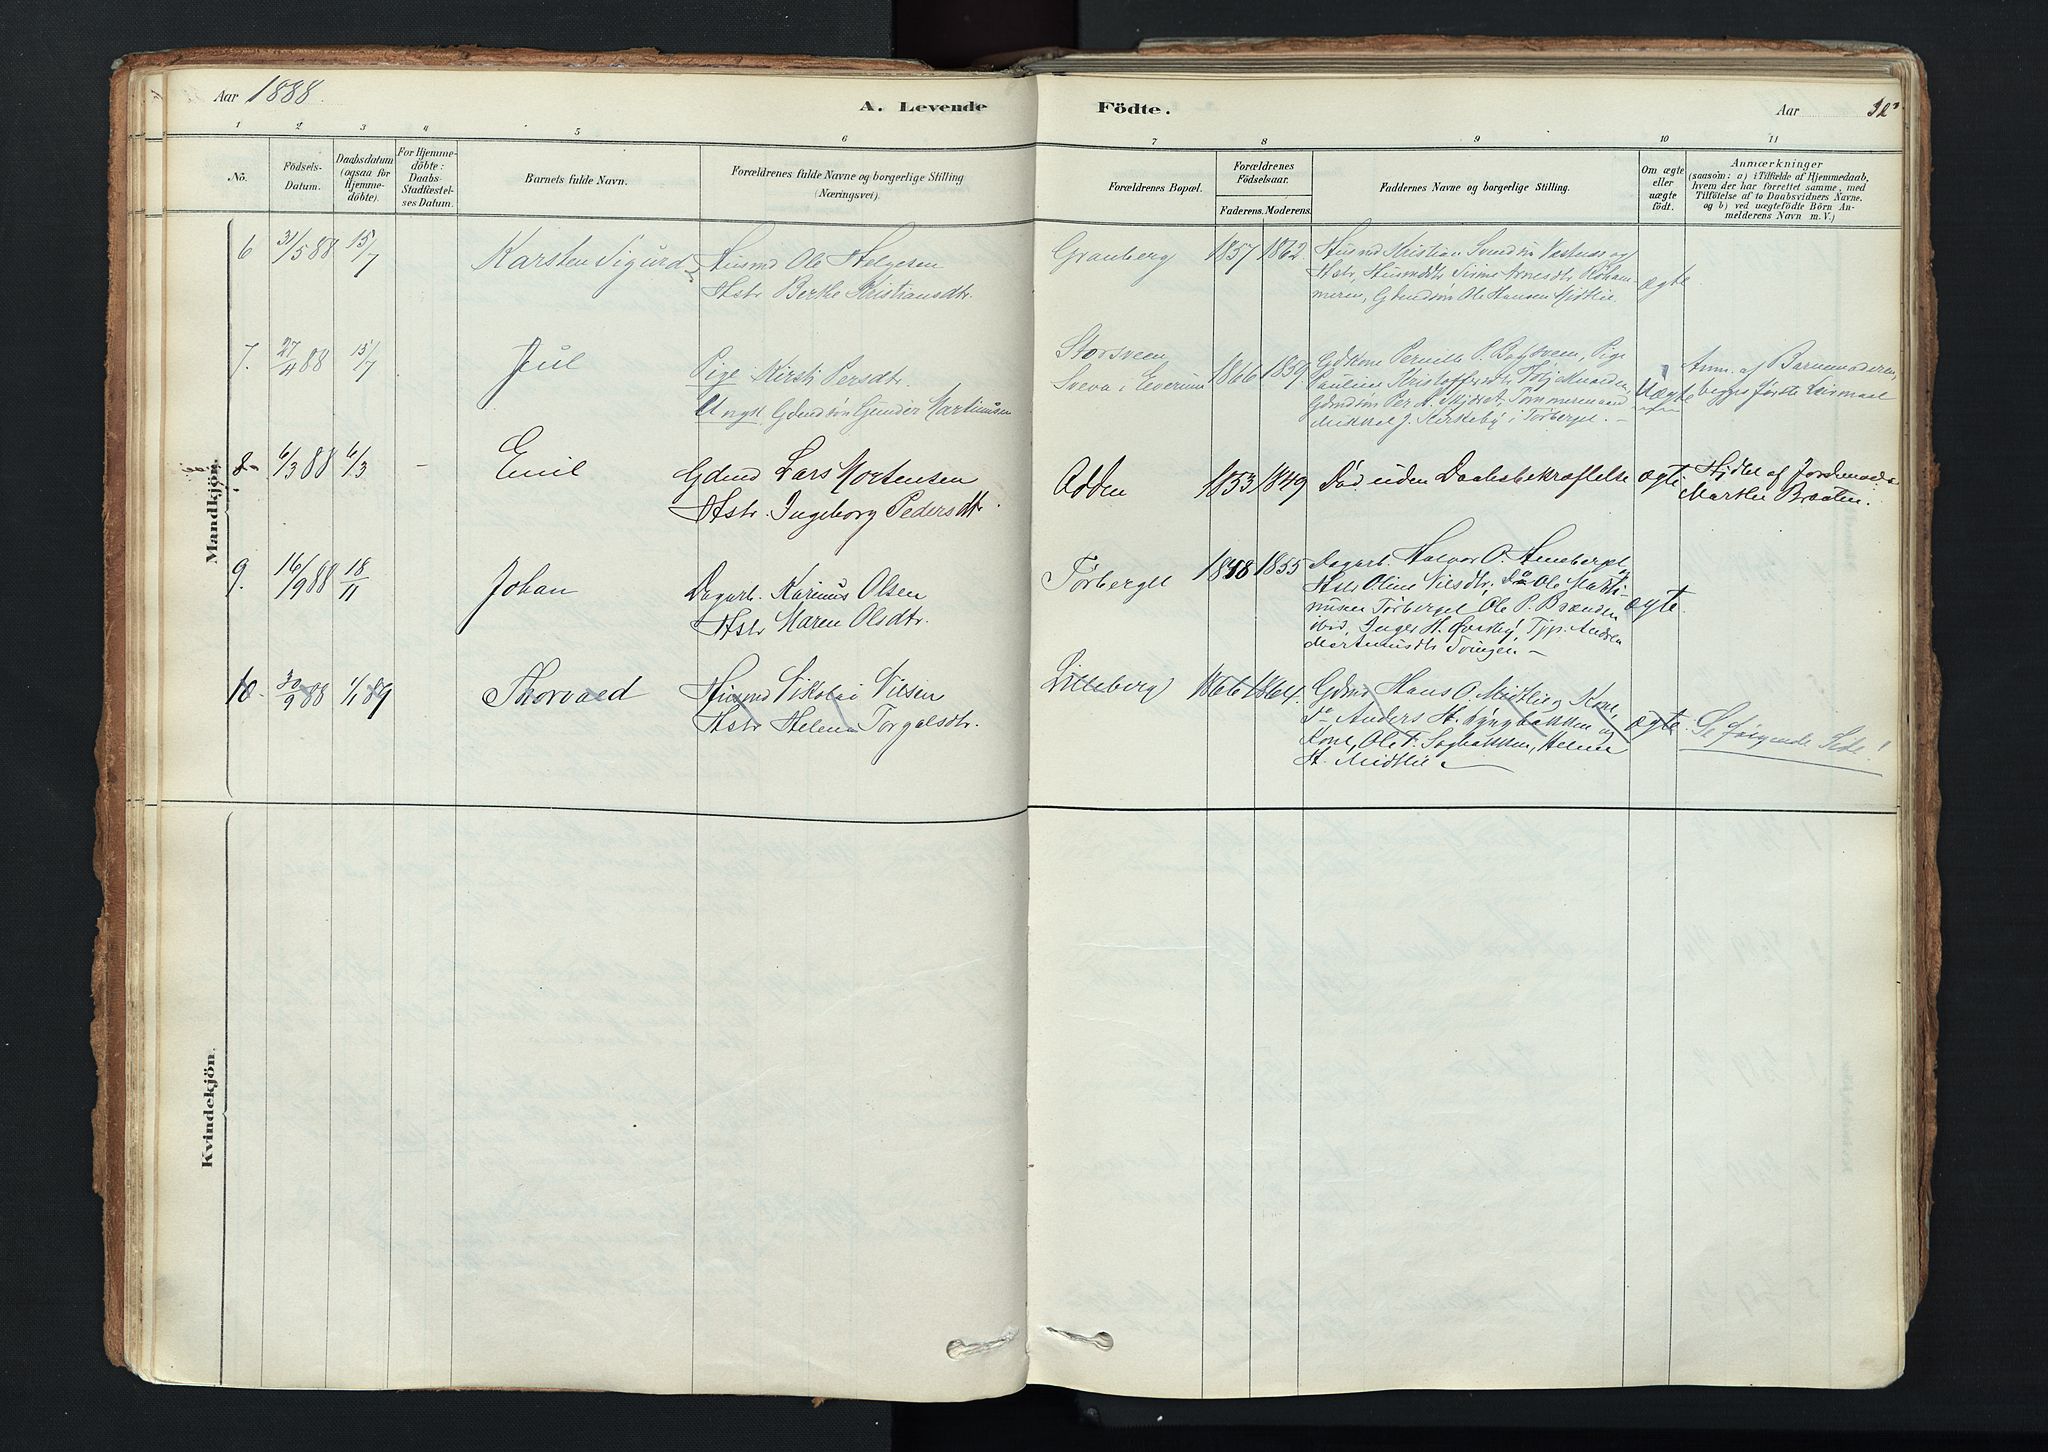 Aar 1888
A. Levende Födte.
Aar
1 2 3 4 5 6 7 8 9 10 11
Nö.
Födsels-Datum.
Daabsdatum (ogsaa for Hjemmedöbte).
For Hjemmedöbte: Daabs-Stadfæstelses Datum.
Barnets fulde Navn.
Forældrenes fulde Navne og borgerlige Stilling (Næringsvei).
Forældrenes Bopæl.
Forældrenes Födselsaar.
Faderens. Moderens.
Faddernes Navne og borgerlige Stilling.
Om ægte eller uægte födt.
Anmærkninger
(saasom: a) i Tilfælde af Hjemmedaab,
hvem der har forrettet samme, med
Tilföielse af to Daabsvidners Navne.
og b) ved uægtefödte Börn An-
melderens Navn m. V.)
Mandkjön.
6 31/5 88 15/7 Karsten Sigurd Husmd Ole Helgesen
Hstr Berthe Kristiansdtr.
Granberg 1857 1862 Husmd Kristian Svendsen Vestnæs og
Hstr, Ole Hansen Midtlie
ægte
7. 27/4 88 15/7 Jul Pige Kirsti Persdtr.
Ungk Gdmdsøn Gunder Martinusen
Storsveen
1866 1859 Gdkone Pernille P. Pige
Pauline Kristoffersdtr
Gdmdsøn Per A.
J. Kirkeby i Tørberget.
uægte
Anm. af Barnemoderen,
begges første Leiermaal
8 6/3 88 6/3 - Emil Gdmd Lars Mortensen
Hstr. Ingeborg Pedersdtr.
Odden 1853 1849 Død uden Daabsbekræftelse ægte Hjdbt af Jordemoder
Marthe Braaten.
9. 16/9 88 18/11 Johan Dagarb. Karinus Olsen
Hstr Maren Olsdtr.
Tørberget 1858 1855 Dagarb. Halvor O. Henneberget og
Hstr Oline Nilsdtr, Do Ole Marti-
nusen Tørberget, Ole P. Brænden
ibid, Inger H. Tjp. Andrea
Martinusdtr Svingen -
ægte
10. 30/9 88 1/1 89 Thorvald Husmd Nikolai Nilsen
Hstr Helene Torgalsdtr.
Lilleberg 1866 1864. Gdmd Hans O. Midtlie og Kone,
Do Anders H. Lyngbakken og
Kone, Ole T. Sagbakken, Helene
H. Midtlie -
ægte. Se følgende Side!
Kvindekjön.